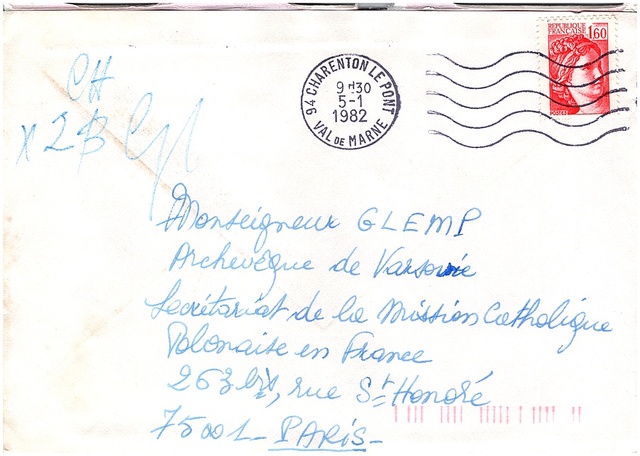 REPUBLIQUE
FRANÇAISE 1,60
POSTES
94 CHARENTON LE PONT
9H30
5-1
1982
VAL DE MARNE
CH
x 2B
Monseigneur GLEMP
Archevêque de Varsovie
Secrétariat de la Mission Catholique
Polonaise en France
263 bis, rue St Honoré
75001 - PARIS -